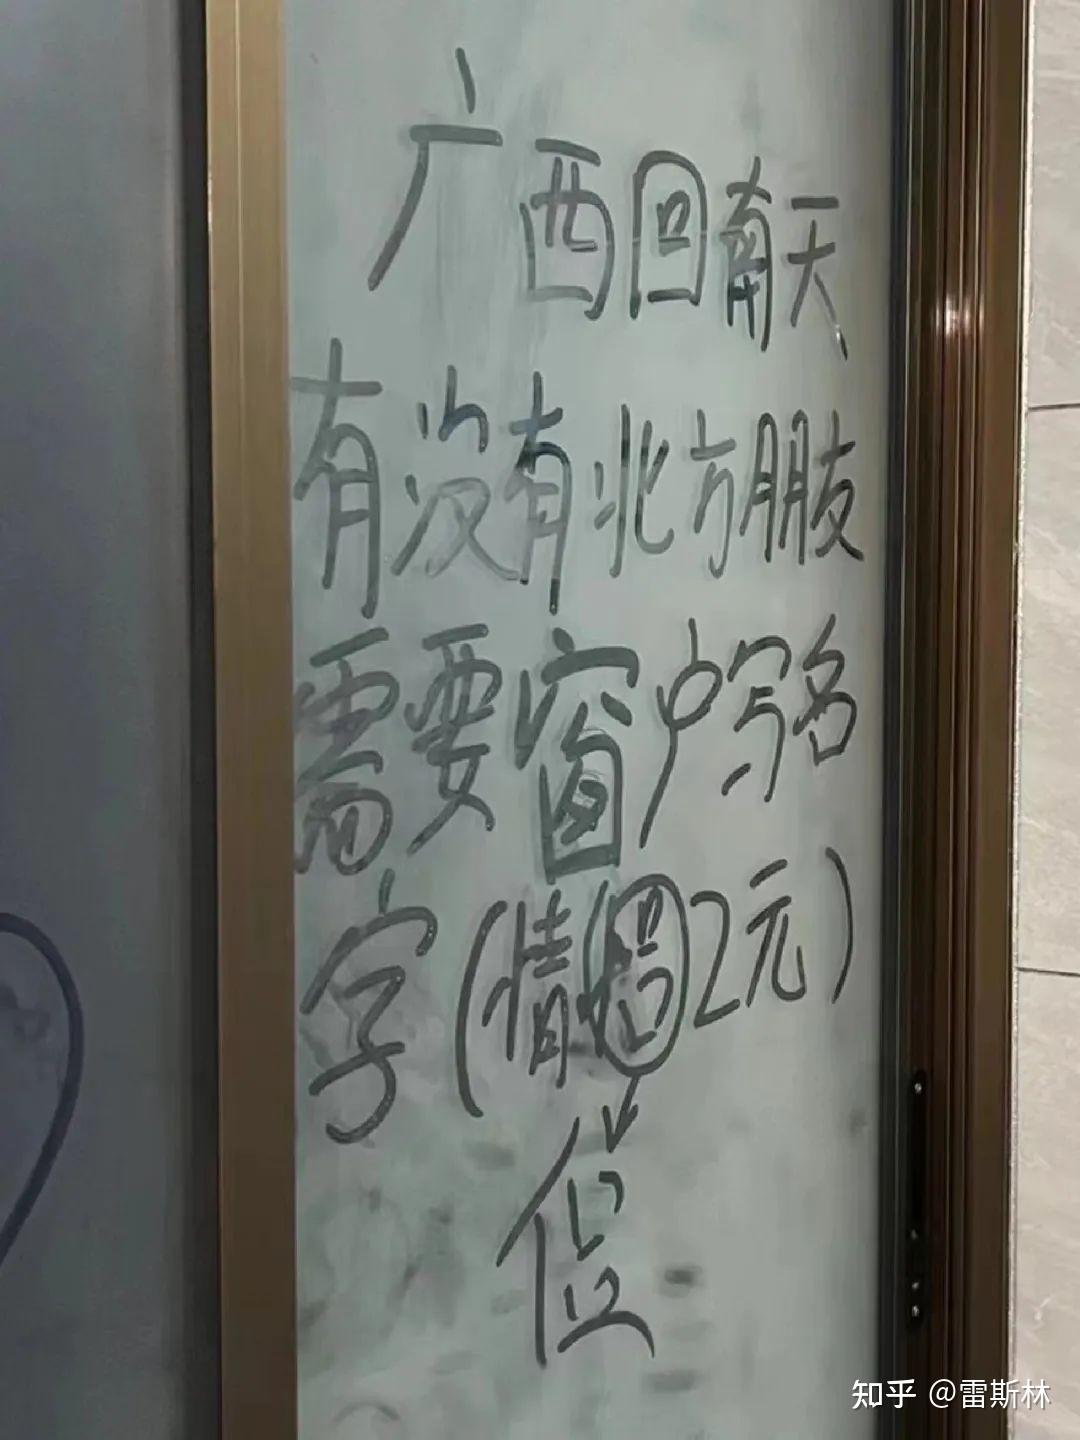 广西回南天
有没有北方朋友
需要窗户写名
字(情侣2元)
侣
知乎 @雷斯林